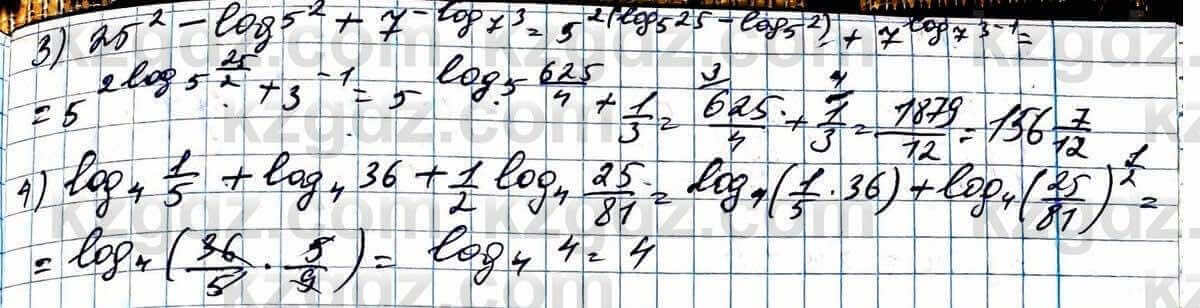 3) 25² - log5² + 7^(-log₇3) = 5^(2(log₅25 - log5²)) + 7^(log₇3⁻¹) =
= 5^(2log5 25/2) + 3⁻¹ = 5^(log₅ 625/4) + 1/3 = 625/4 + 1/3 = 1879/12 = 156 7/12
4) log₄ 1/5 + log₄ 36 + 1/2 log₄ 25/81 = log₄(1/5 · 36) + log₄(25/81)^(1/2) =
= log₄(36/5 · 5/9) = log₄ 4 = 4
kzgdz.com